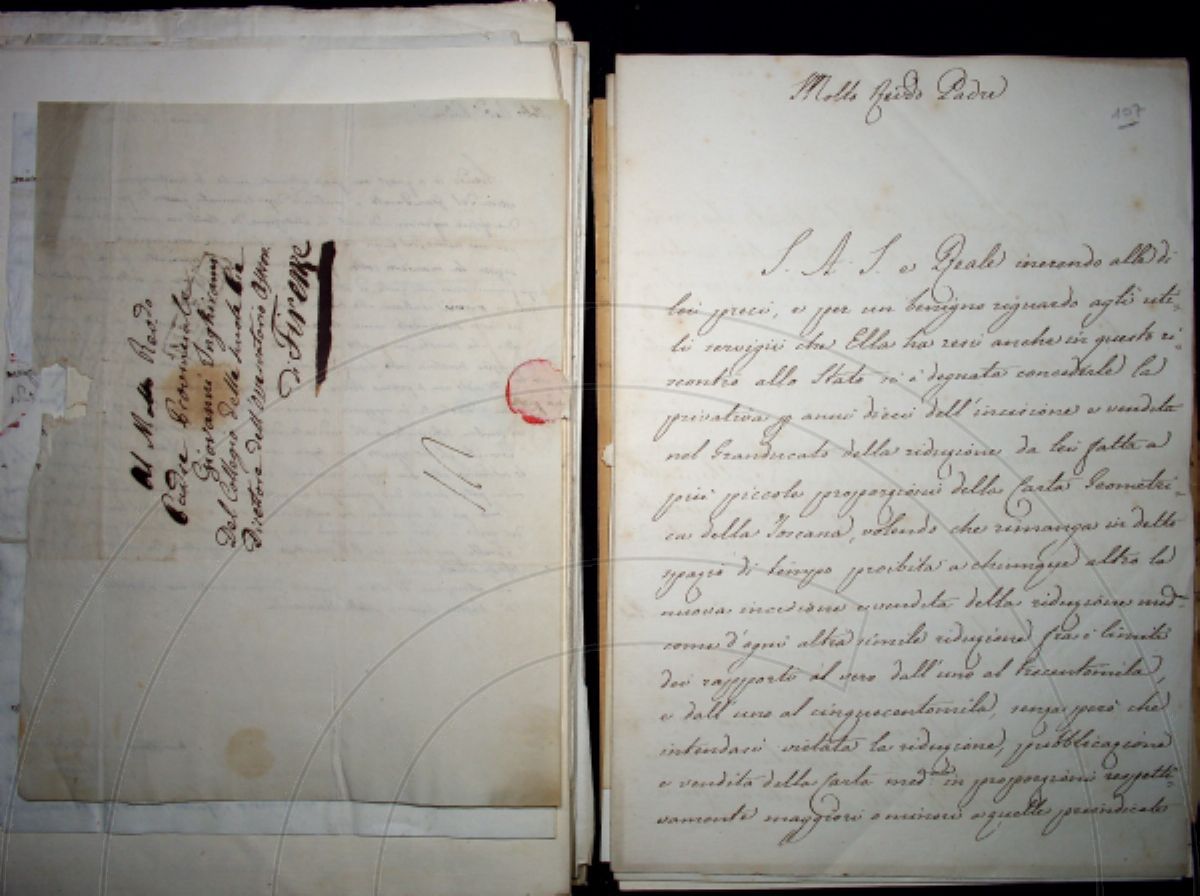 Al Molto Revdo.
Padre Provinciale
Giovanni Inghirami
Del Collegio delle Scuole Pie
Direttore dell'Osservatorio
di Firenze
Molto Revdo Padre
107
S. A. I. e Reale inerendo alle di
lei preci, e per un benigno riguardo agli uti-
li servigii che Ella ha resi anche in questo ri-
scontro allo Stato si è degnata concederle la
privativa p anni dieci dell'incisione e vendita
nel Granducato della riduzione da lei fatta a
più piccole proporzioni della Carta Geometri-
ca della Toscana, volendo che rimanga in detto
spazio di tempo proibita a chiunque altro la
nuova incisione e vendita della riduzione med.
come d'ogni altra simile riduzione fra i limiti
dei rapporti al vero dall'uno al trecentomila,
e dall'uno al cinquecentomila, senza però che
intendasi vietata la riduzione, pubblicazione
e vendita della Carta med.ma in proporzioni respetti-
vamente maggiori o minori a quelle preindicate